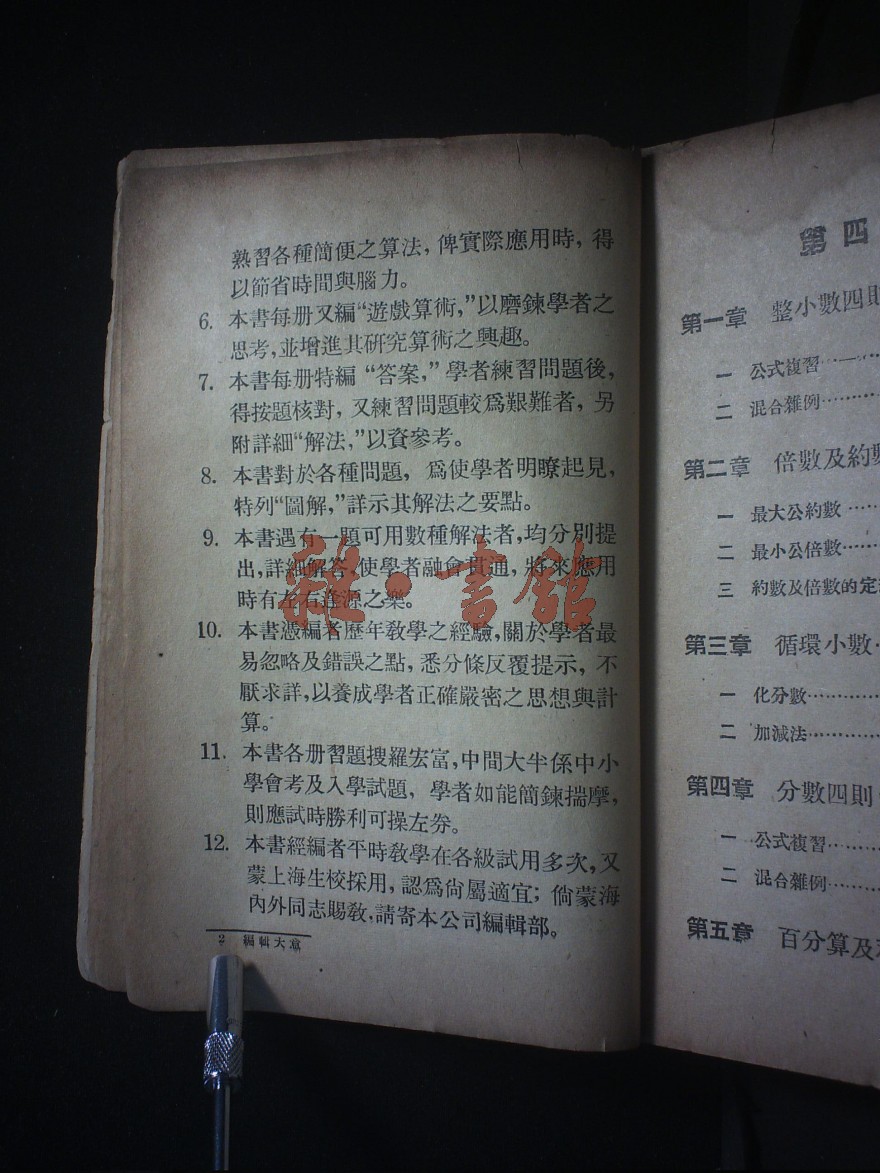 熟習各種簡便之算法，俾實際應用時，得
以節省時間與腦力。
6. 本書每册又編“遊戲算術，”以磨鍊學者之
思考，並增進其研究算術之興趣。
7. 本書每册特編“答案，”學者練習問題後，
得按題核對，又練習問題較爲艱難者，另
附詳細“解法，”以資參考。
8. 本書對於各種問題，爲使學者明瞭起見，
特列“圖解，”詳示其解法之要點。
9. 本書遇有一題可用數種解法者，均分別提
出，詳細解答，使學者融會貫通，將來應用
時有左右逢源之樂。
10. 本書憑編者歷年敎學之經驗，關於學者最
易忽略及錯誤之點，悉分條反覆提示，不
厭求詳，以養成學者正確嚴密之思想與計
算。
11. 本書各册習題搜羅宏富，中間大半係中小
學會考及入學試題，學者如能簡鍊揣摩，
則應試時勝利可操左券。
12. 本書經編者平時敎學在各級試用多次，又
蒙上海生校採用，認爲尙屬適宜；倘蒙海
內外同志賜敎，請寄本公司編輯部。
2 編輯大意
雜·書館
第四
第一章 整小數四則
一 公式複習……
二 混合雜例……
第二章 倍數及約數
一 最大公約數……
二 最小公倍數……
三 約數及倍數的定
第三章 循環小數…
一 化分數……
二 加減法……
第四章 分數四則
一 公式複習……
二 混合雜例……
第五章 百分算及